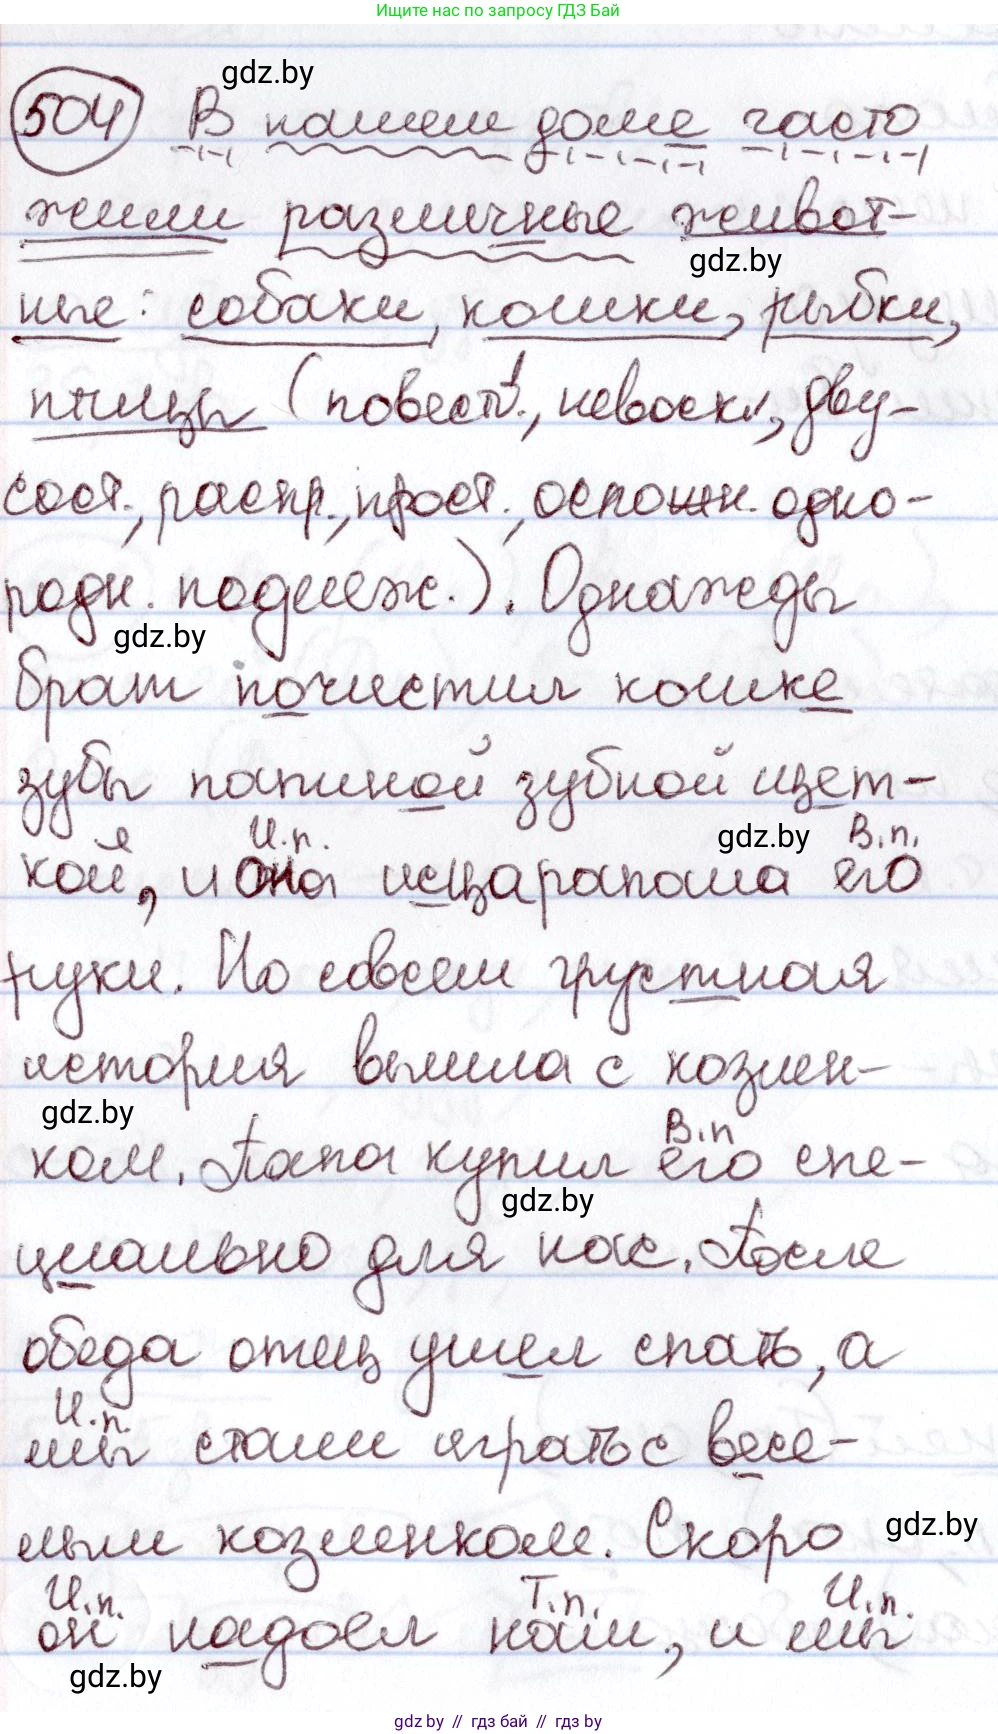 Ищите нас по запросу ГДЗ Бай
gdz.by
504 В нашем доме часто
жили различные живот-
gdz.by
ные: собаки, кошки, рыбки,
птицы (повеств., невоскл., дву-
сост., распр., прост., осложн. одно-
родн. подлеж.). Однажды
gdz.by
брат почистил кошке
зубы папиной зубной щет-
gdz.by
я И.п. В.п.
кой, и она исцарапала его
руки. Но совсем грустная
история вышла с козлен-
gdz.by
В.п
ком. Папа купил его спе-
gdz.by
циально для нас. После
обеда отец ушел спать, а
И.п
мы стали играть с весе-
gdz.by
лым козленком. Скоро
И.п. Т.п. И.п.
он надоел нам, и мы
gdz.by
gdz.by // гдз бай // gdz.by